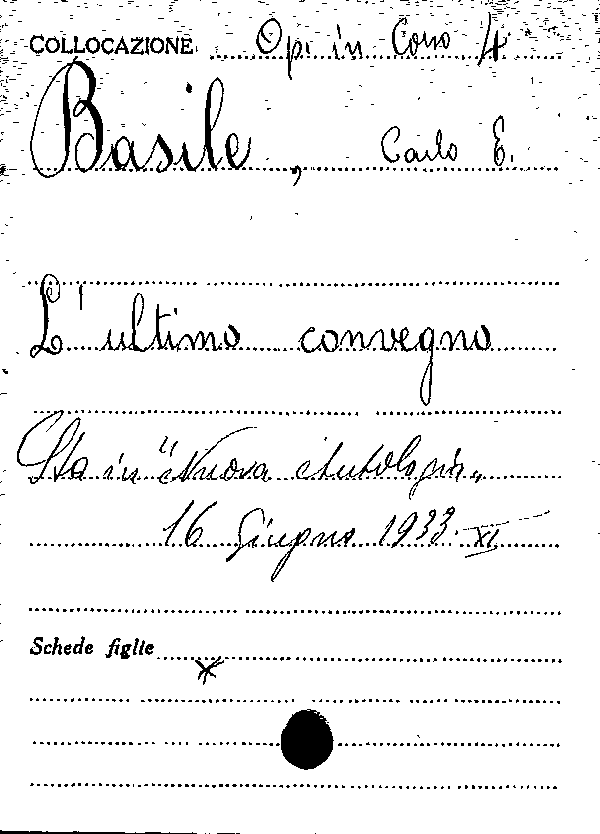 COLLOCAZIONE Op. in Corso 4
Basile, Carlo E.
L'ultimo convegno
Sta in "Nuova Antologia„
16 Giugno 1933. XI
Schede figlie